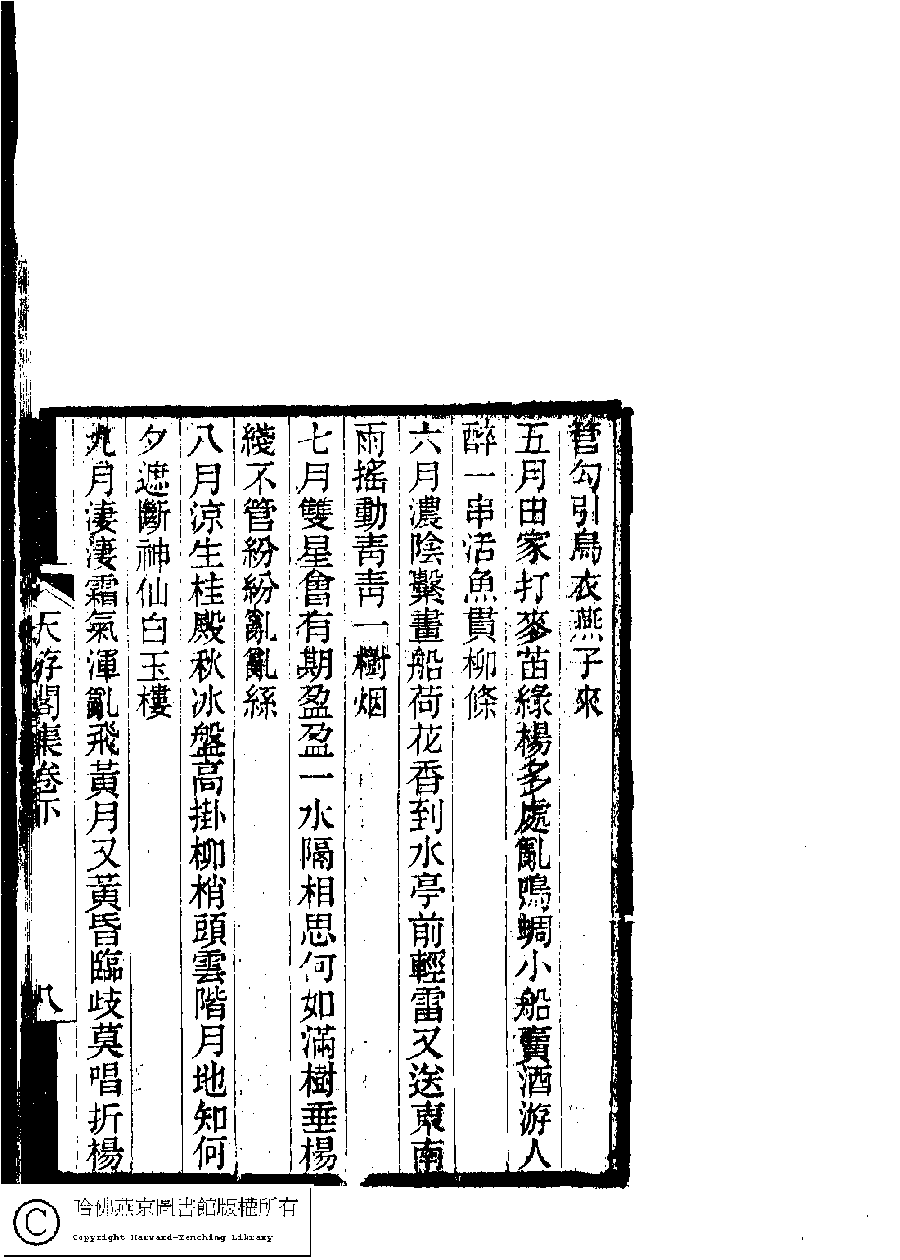 管勾引烏衣燕子來
五月田家打麥苗緣楊多處亂鳴蜩小船賣酒游人
醉一串活魚貫柳條
六月濃陰繫畫船荷花香到水亭前輕雷又送東南
雨搖動靑靑一樹烟
七月雙星會有期盈盈一水隔相思何如滿樹垂楊
綫不管紛紛亂亂絲
八月涼生桂殿秋冰盤高掛柳梢頭雲階月地知何
夕遮斷神仙白玉樓
九月淒淒霜氣渾亂飛黃月又黃昏臨歧莫唱折楊
天游閣集卷下
八
哈佛燕京圖書館版權所有
Copyright Harvard-Yenching Library